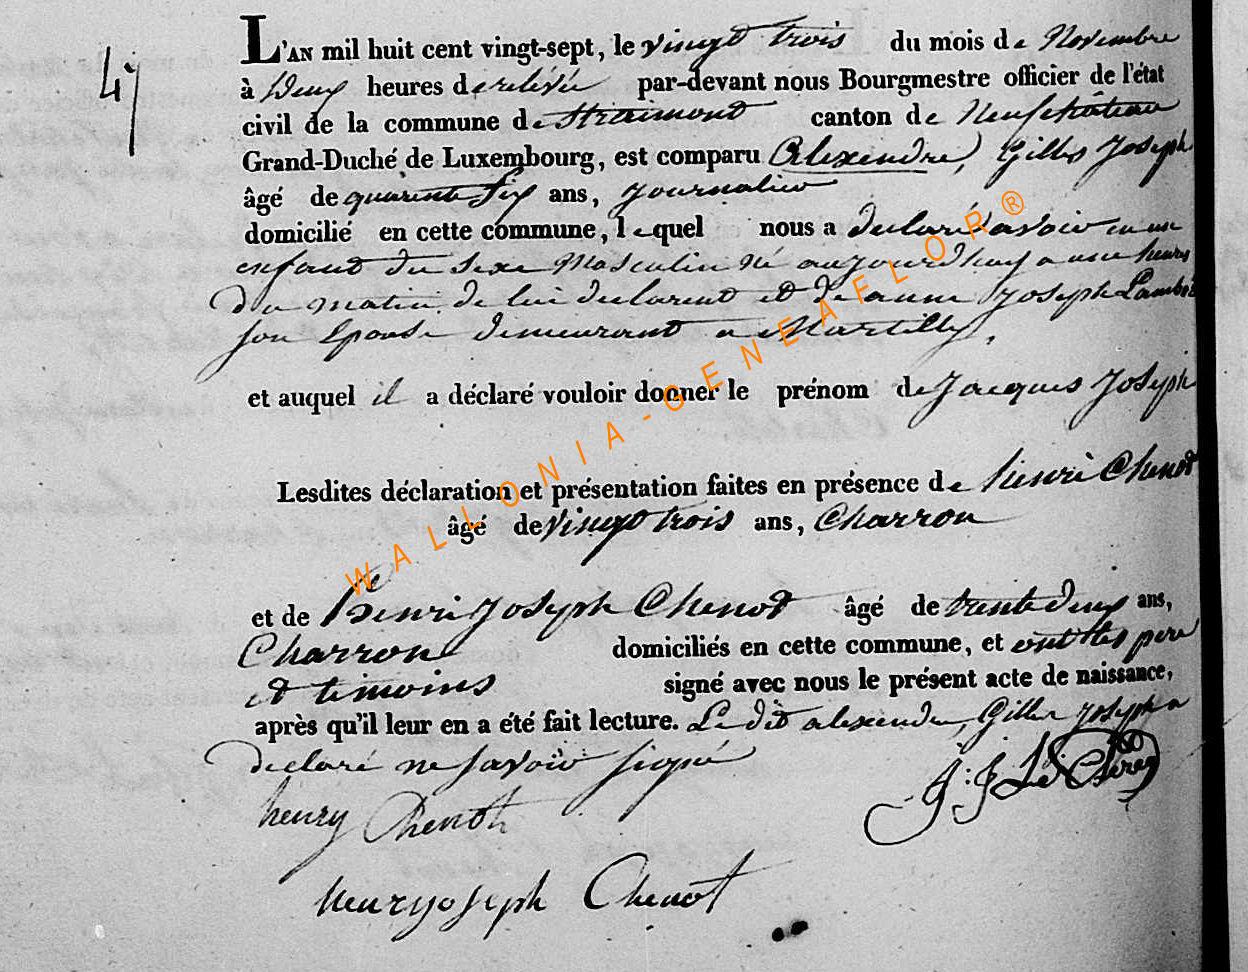 47
L'AN mil huit cent vingt-sept, le vingt trois du mois de Novembre
à Deux heures de relévée par-devant nous Bourgmestre officier de l'état
civil de la commune de Straimont canton de Neufchâteau
Grand-Duché de Luxembourg, est comparu Alexendre, Gilles Joseph
âgé de quarente six ans, journalier
domicilié en cette commune, lequel nous a declaré avoir eu un
enfant du sexe Masculin né aujourdhuy a une heures
du matin de lui declarent et de anne Joseph Lambé
son Epouse demeurant a Martilly,
et auquel il a déclaré vouloir donner le prénom de Jacques Joseph
Lesdites déclaration et présentation faites en présence de henri Chenot
âgé de vingt trois ans, Charron
et de henri Joseph Chenot âgé de trente deux ans,
Charron domiciliés en cette commune, et ont les pere
et temoins signé avec nous le présent acte de naissance,
après qu'il leur en a été fait lecture. Le dit alexendre, Gilles Joseph a
declaré ne savoir signé
henry Chenot J: J Le Clerez
henry joseph Chenot
WALLONIA-GENEAFLOR®